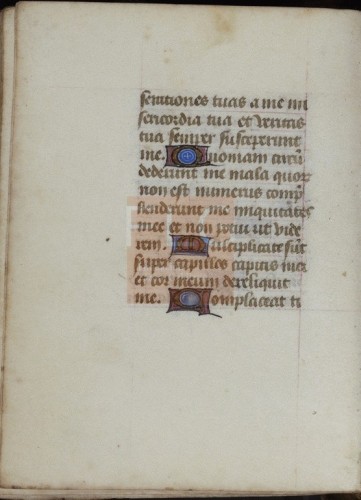 serationes tuas a me mi
sericordia tua et veritas
tua semper susceperunt
me. Quoniam circū
dederunt me mala quor
non est numerus compͤ
henderunt me iniquitates
mee et non potui ut vide
rem. Multiplicate sūt
super capillos capitis mei
et cor meum dereliquit
me. Complaceat ti